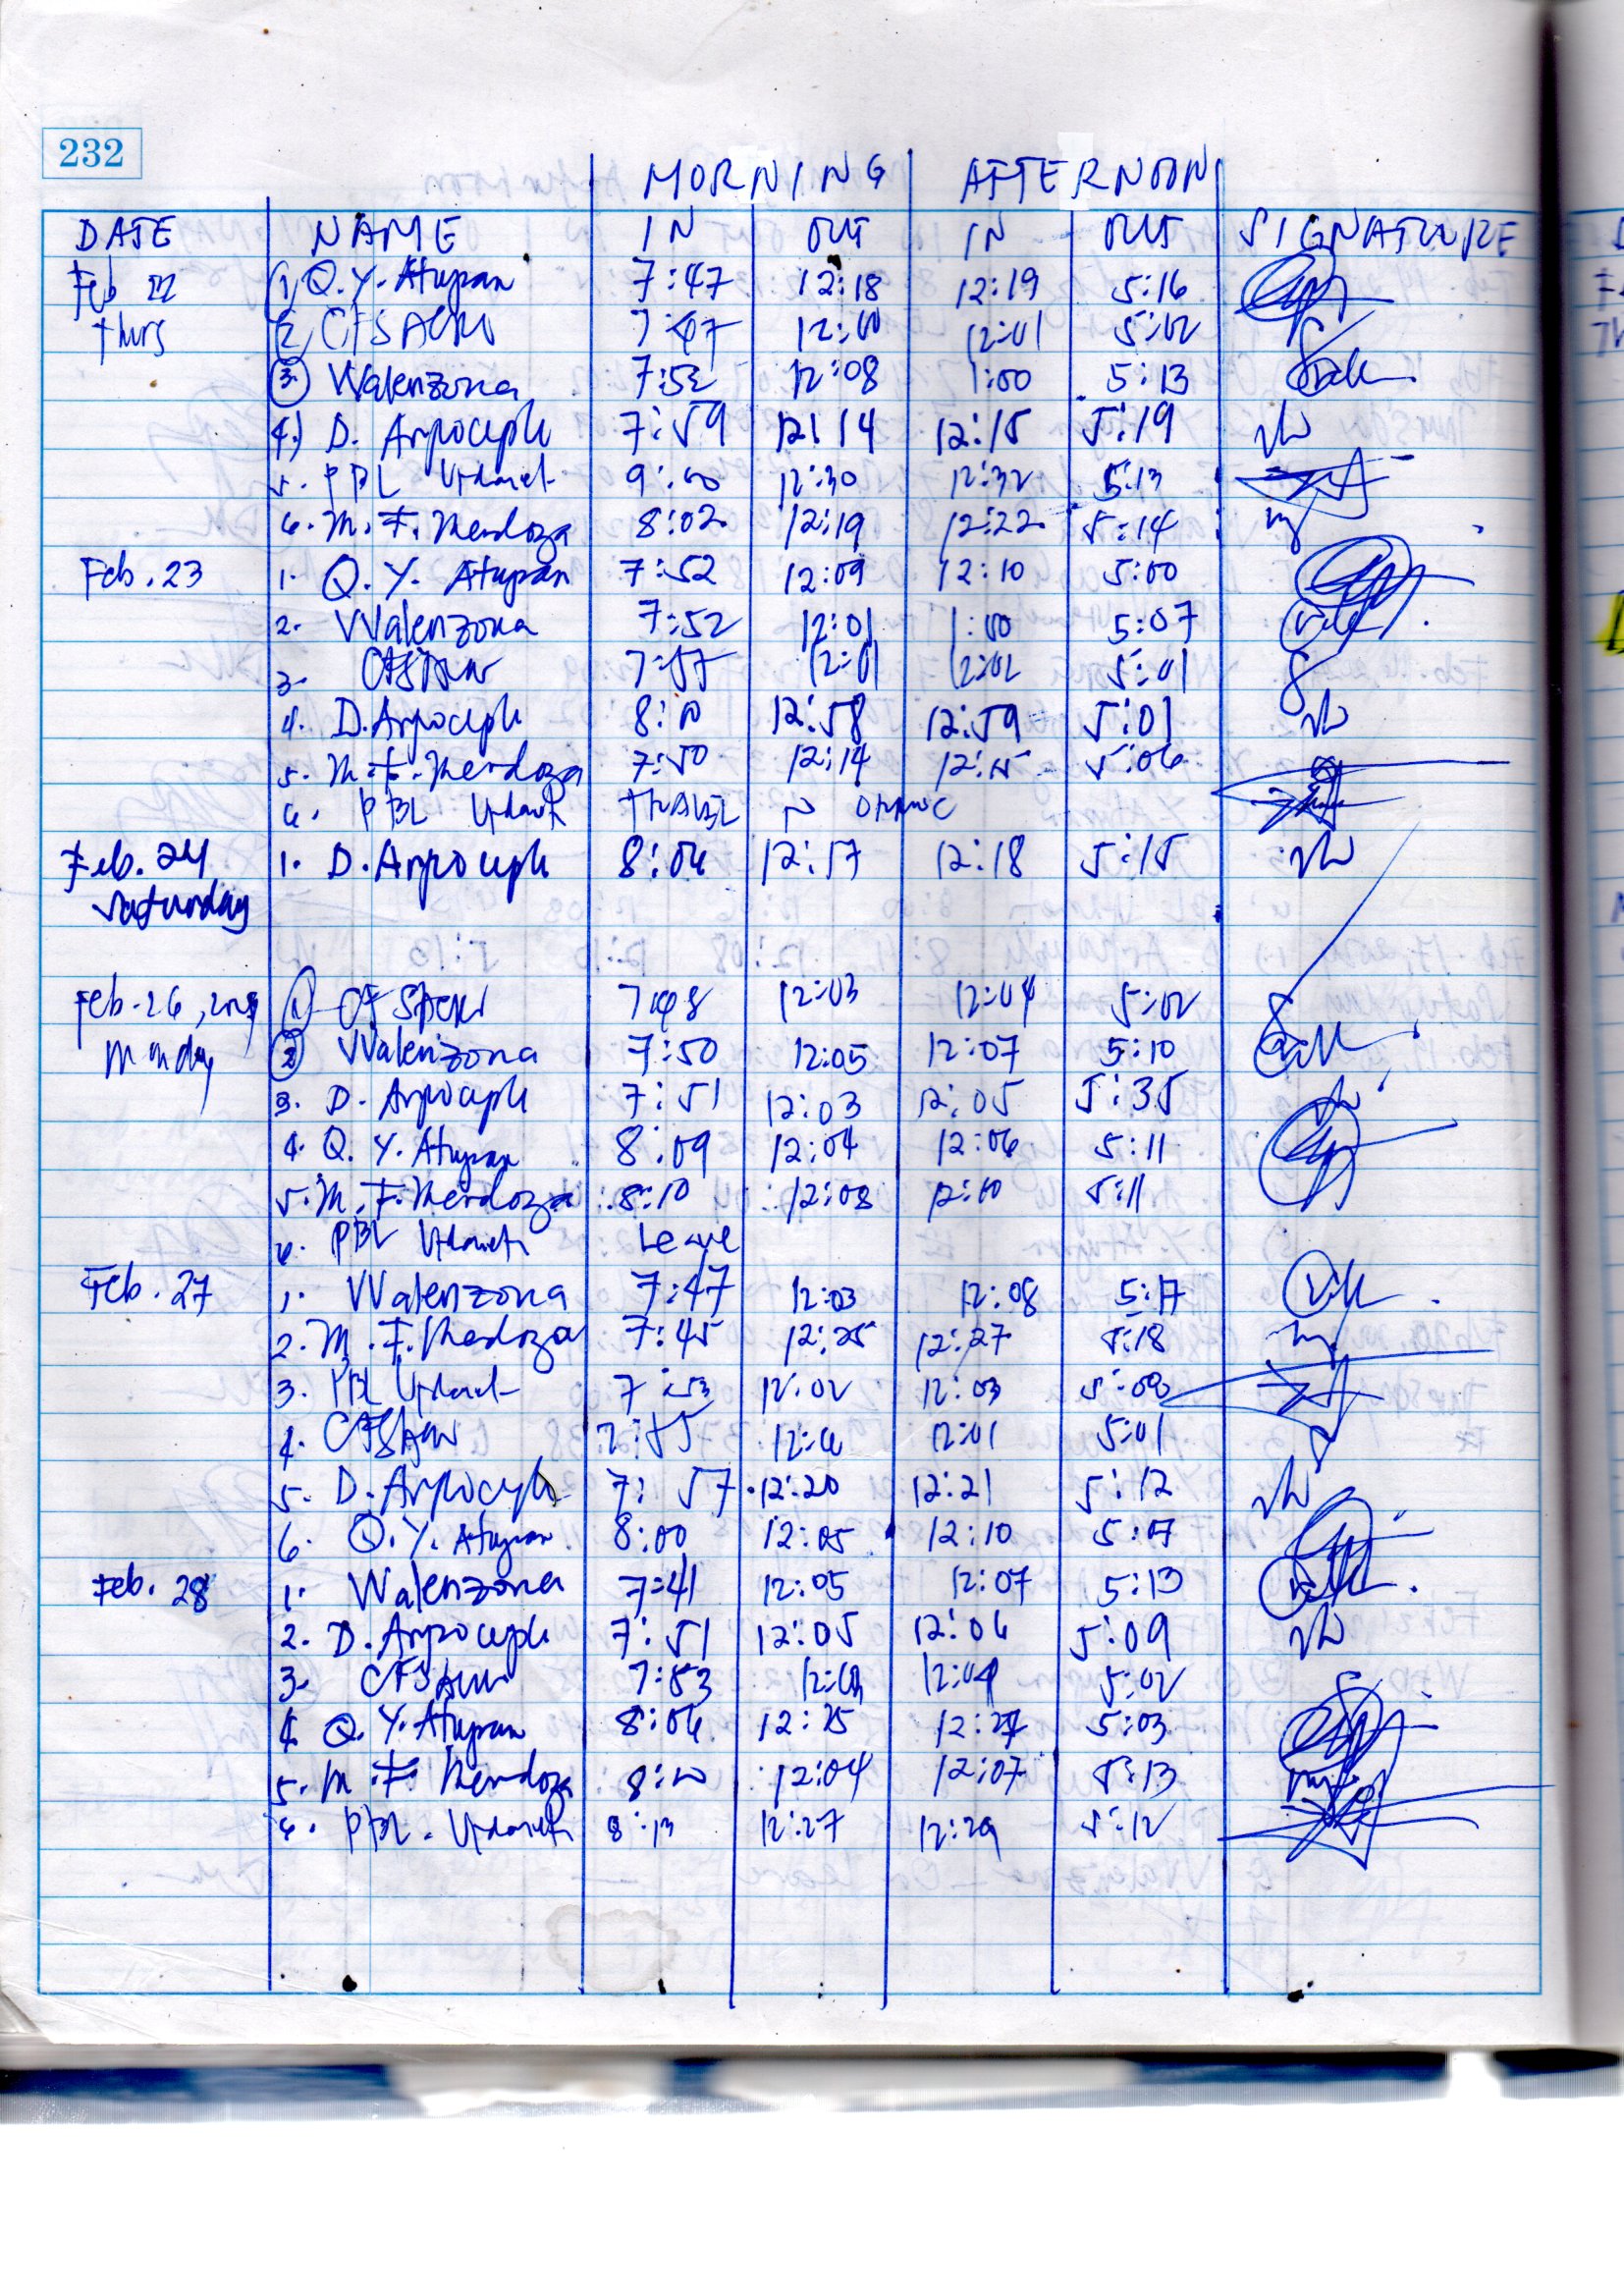 232
MORNING AFTERNOON
DATE NAME IN OUT IN OUT SIGNATURE
Feb 22 1) Q. Y. Atupan 7:47 12:18 12:19 5:16
Thurs 2) 7:47 12:00 12:01 5:02
3. VValenzona 7:52 12:08 1:00 5:13
4.) D. Arpoceple 7:59 12:14 12:15 5:19
5. PBL 9:00 12:30 12:32 5:13
6. M. F. Mendoza 8:02 12:19 12:22 5:14
Feb. 23 1. Q. Y. Atupan 7:52 12:09 12:10 5:00
2. VValenzona 7:52 12:01 1:00 5:07
3. 7:57 12:01 12:02 5:01
4. D. Arpoceple 8:10 12:58 12:59 5:01
5. M. F. Mendoza 7:50 12:14 12:15 5:06
6. PBL TRAVEL
Feb. 24 1. D. Arpoceple 8:06 12:17 12:18 5:15
Saturday
Feb. 26, 1) 7:48 12:03 12:04 5:02
Monday 2 VValenzona 7:50 12:05 12:07 5:10
3. D. Arpoceple 7:51 12:03 12:05 5:35
4. Q. Y. Atupan 8:09 12:04 12:06 5:11
5. M. F. Mendoza 8:10 12:08 12:10 5:11
6. PBL Leave
Feb. 27 1. VValenzona 7:47 12:03 12:08 5:17
2. M. F. Mendoza 7:45 12:25 12:27 5:18
3. PBL 7:53 12:02 12:03 5:09
4. 7:55 12:00 12:01 5:01
5. D. Arpoceple 7:57 12:20 12:21 5:12
6. Q. Y. Atupan 8:00 12:05 12:10 5:07
Feb. 28 1. VValenzona 7:41 12:05 12:07 5:13
2. D. Arpoceple 7:51 12:05 12:06 5:09
3. 7:53 12:04 5:02
4. Q. Y. Atupan 8:06 12:25 12:27 5:03
5. M. F. Mendoza 8:10 12:04 12:07 5:13
6. PBL. 8:13 12:27 12:29 5:12